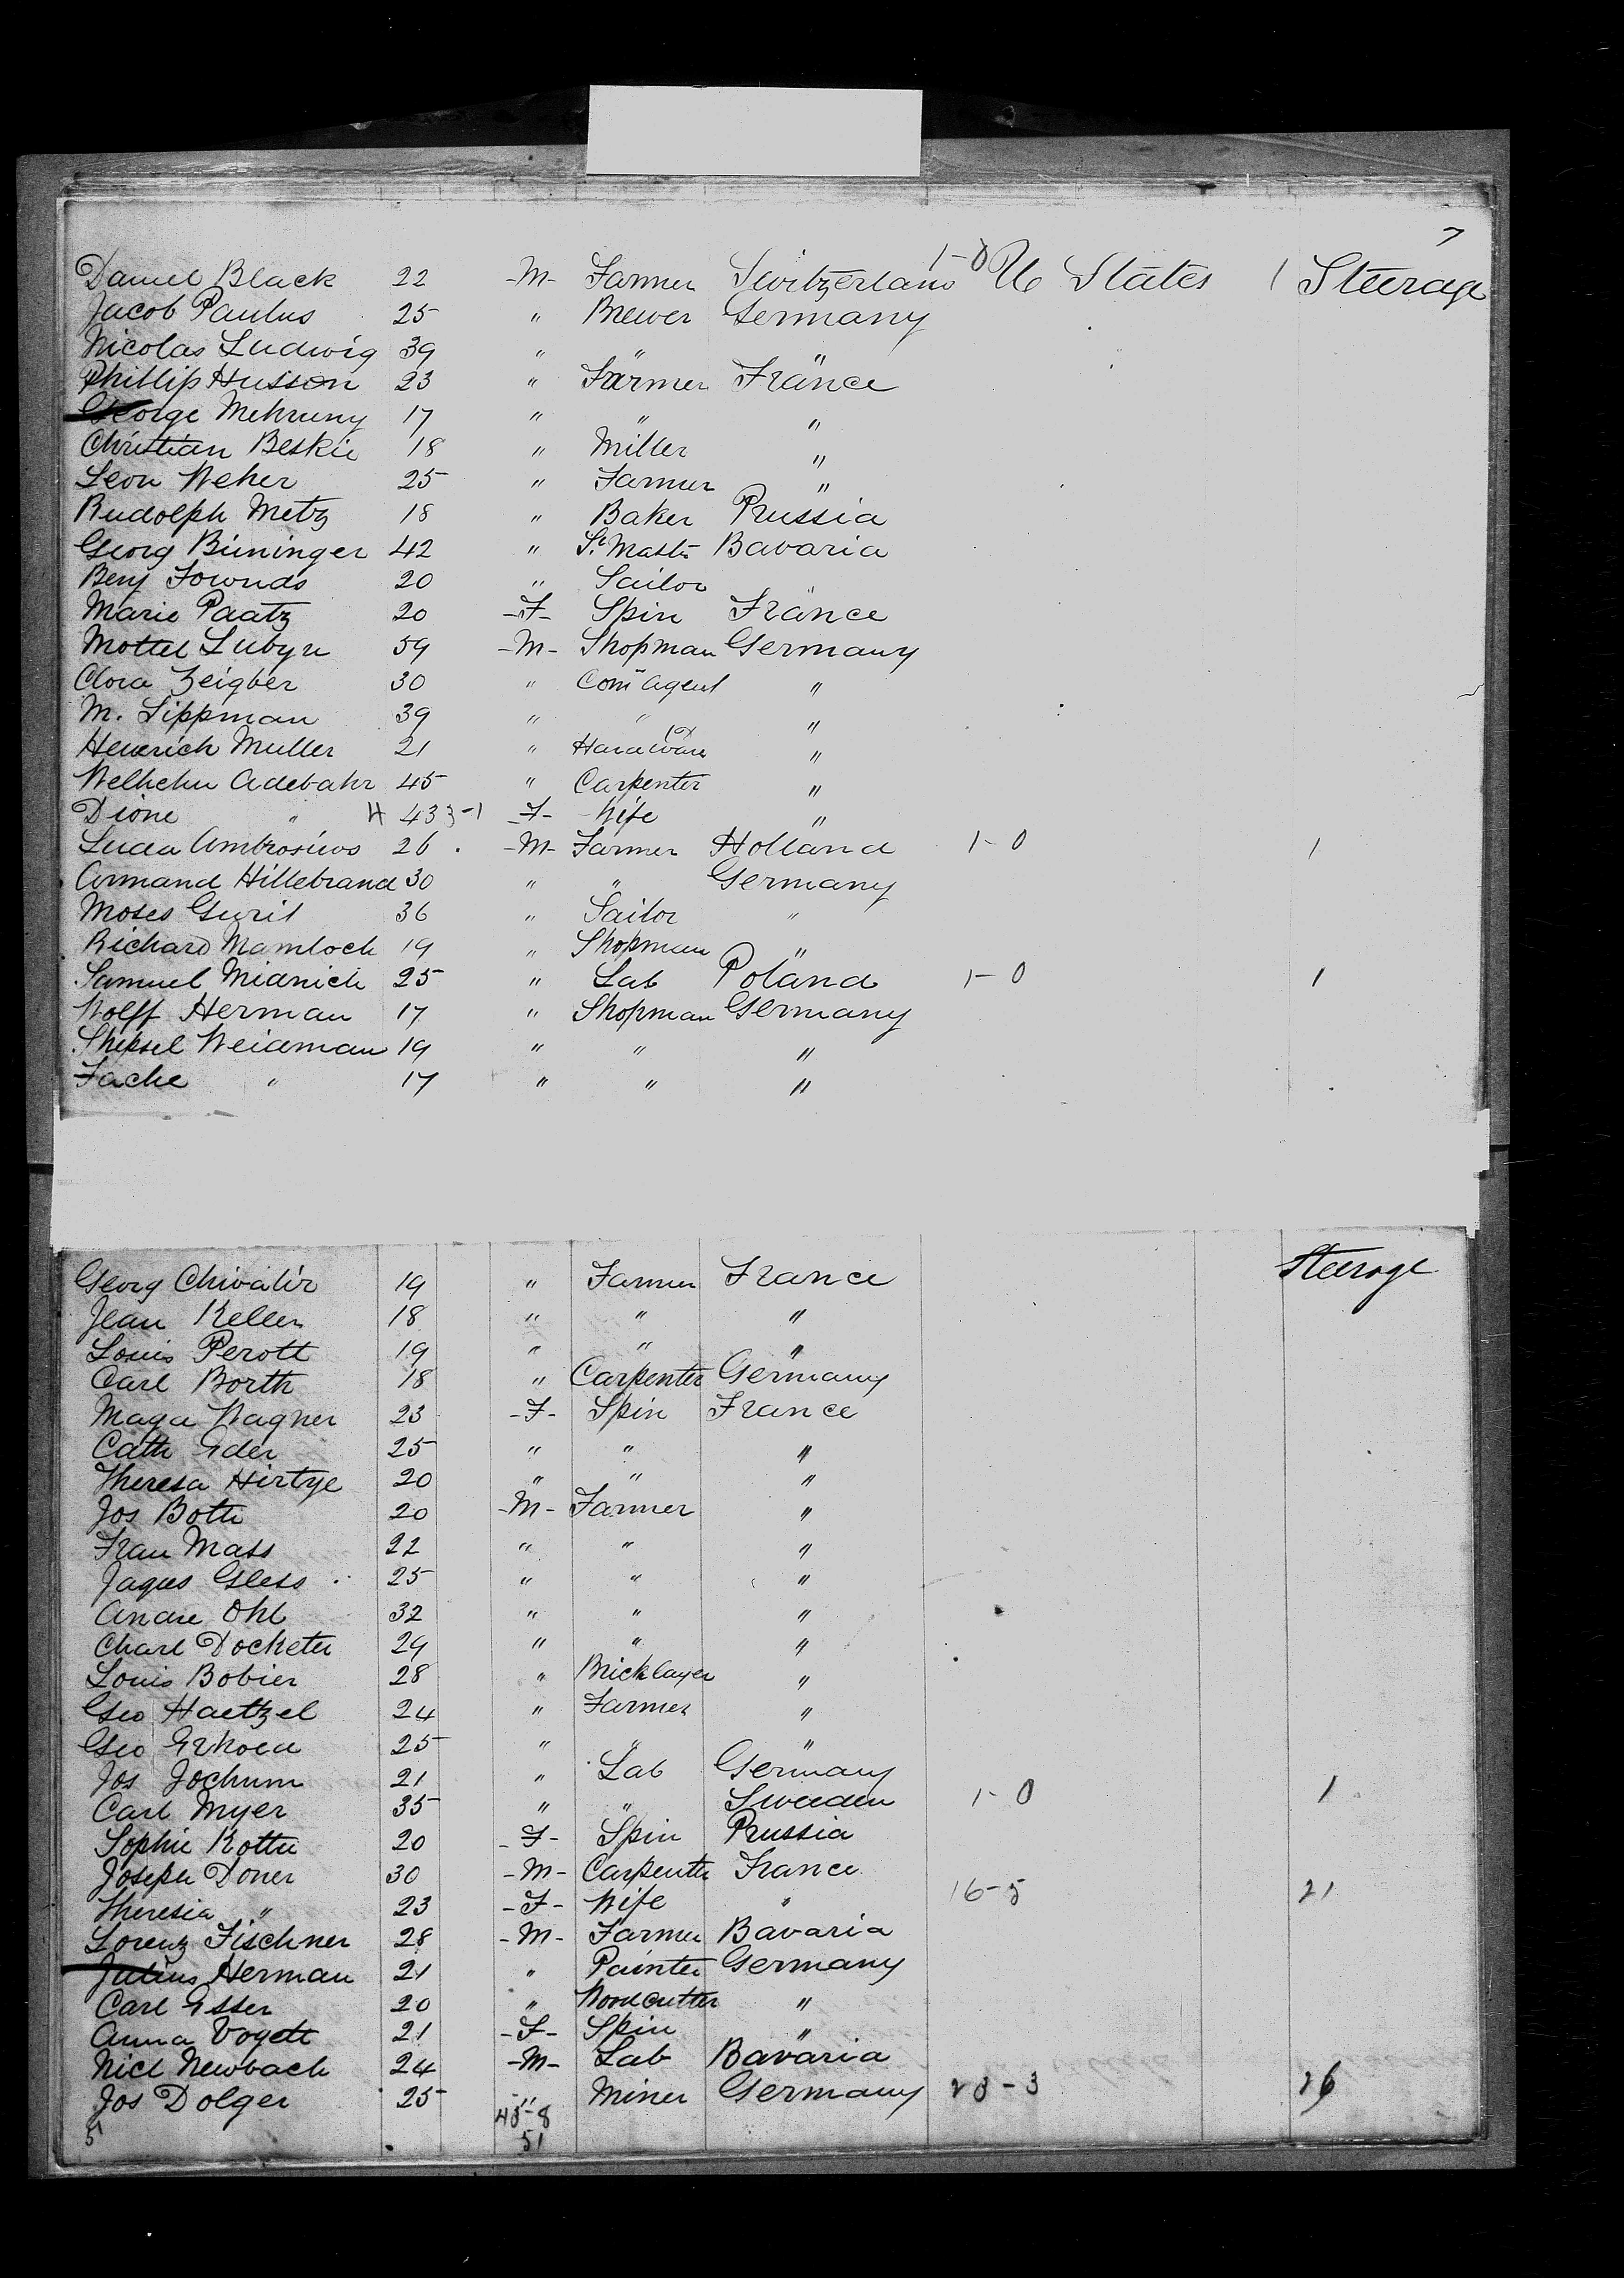 7
Daniel Black 22 -M- Farmer Switzerland 1-0 U States 1 Steerage
Jacob Paulus 25 " Brewer Germany
Nicolas Ludwig 39 " " "
Phillip Husson 23 " Farmer France
George Mehruny 17 " " "
Christian Beskie 18 " Miller "
Leon Weher 25 " Farmer "
Rudolph Metz 18 " Baker Prussia
Georg Bieninger 42 " Bavaria
Benj Townds 20 " Sailor
Marie Paatz 20 -F- Spin France
Mottel Lubyn 59 -M- Shopman Germany
Clora Zeigber 30 " Com Agent "
M. Lippman 39 " " "
Heinrich Muller 21 " Hardware "
Welhelm Adebahr 45 " Carpenter "
Dione " H 43 3-1 -F- Wife "
Ambrosius 26 -M- Farmer Holland 1-0 1
Armand Hillebrand 30 " " Germany
Moses Guril 36 " Sailor "
Richard Mamloch 19 " Shopman "
Samuel Midnick 25 " Lab Poland 1-0 1
Wolff Herman 17 " Shopman Germany
Shepsel Weidman 19 " " "
Fache " 17 " " "
Georg Chivalir 19 " Farmer France Steerage
Jean Keller 18 " " "
Louis Perott 19 " " "
Carl Borth 18 " Carpenter Germany
Maga Wagner 23 -F- Spin France
Cath Eder 25 " " "
Theresa Hirtye 20 " " "
Jos Both 20 -M- Farmer "
Frau Mass 22 " " "
Jaques Gless 25 " " "
Andre Ohl 32 " " "
Charl Docketer 29 " " "
Louis Bobier 28 " Bricklayer "
Geo Haetzel 24 " Farmer "
Geo 25 " " "
Jos Jochum 21 " Lab Germany
Carl Myer 35 " " Sweeden 1-0 1
Sophie Kotte 20 -F- Spin Prussia
Joseph Doner 30 -M- Carpenter France
Theresia " 23 -F- Wife " 16-5 21
Lorenz Fischner 28 -M- Farmer Bavaria
Julius Herman 21 " Painter Germany
Carl Esser 20 " Woodcutter "
Anna Vogett 21 -F- Spin "
Nicl Newbach 24 -M- Lab Bavaria
Jos Dolger 25 " Miner Germany 23-3 26
51 43-8
51